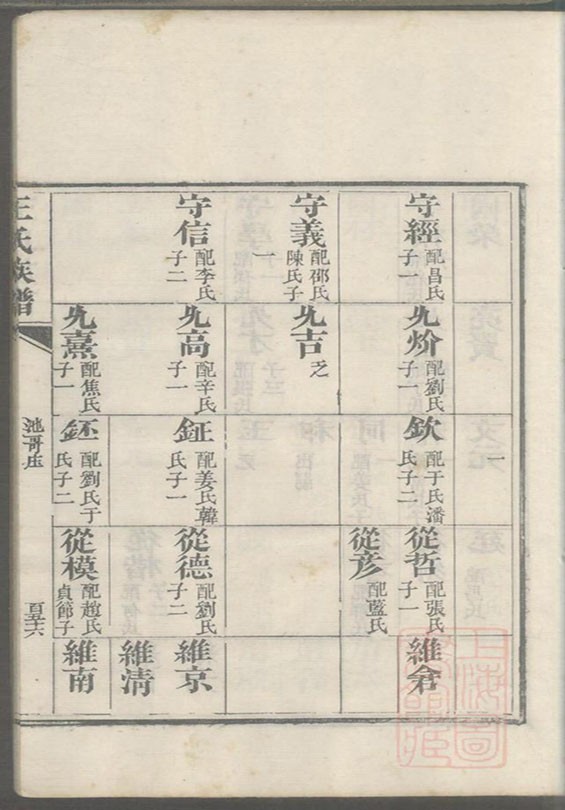 守經 配昌氏 子一
守義 配邵氏 陳氏子一
守信 配李氏 子二
允價 配劉氏 子一
允吉 乏
允高 配辛氏 子一
允熹 配焦氏 子一
欽 配于氏潘 氏子二
鉦 配姜氏韓 氏子一
鉟 配劉氏于 氏子二
從哲 配張氏 子一
從彥 配藍氏
從德 配劉氏 子二
從模 配趙氏 貞節子一
維侖
維京
維清
維南
王氏族譜
池哥庄
百五十六
上海圖